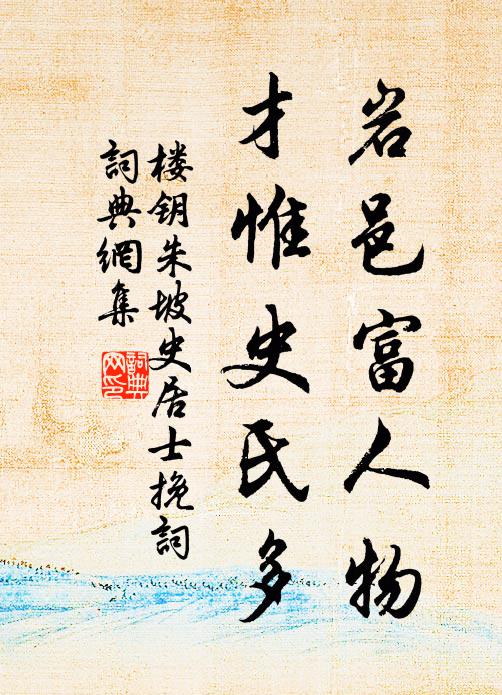 岩邑富人物
才惟史氏多
楼钥朱坡史居士挽詞
詞典網集
詞典网印